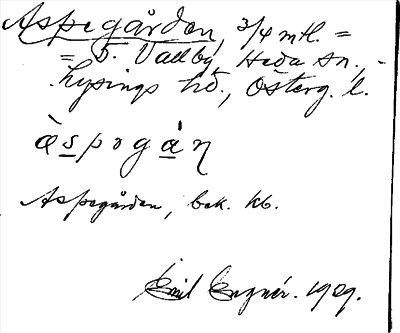 Aspegården, 3/4 mtl. =
= 5. Vallby, Heda sn., -
Lysings hd., Österg. l.
àspogán
Aspegården, bek. kb.
Emil 1929.